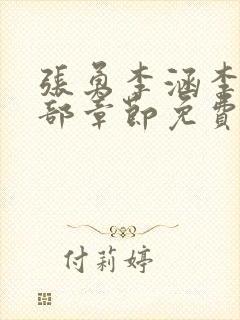 張勇李涵李
部章節免費
付莉婷